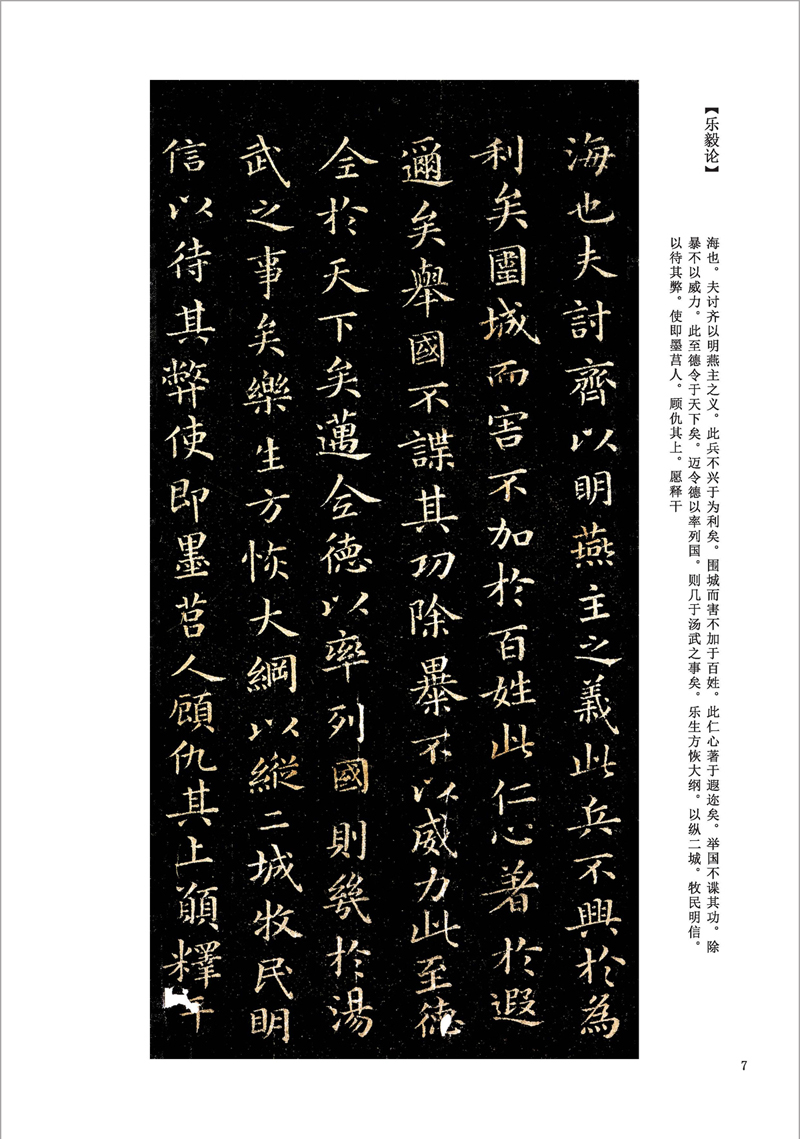 【乐毅论】
海也。夫讨齐以明燕主之义。此兵不兴于为利矣。围城而害不加于百姓。此仁心著于遐迩矣。举国不谍其功。除
暴不以威力。此至德令于天下矣。迈令德以率列国。则几于汤武之事矣。乐生方恢大纲。以纵二城。牧民明信。
以待其弊。使即墨莒人。顾仇其上。愿释干
海也夫討齊以明燕主之義此兵不興於為
利矣圍城而害不加於百姓此仁心著於遐
邇矣舉國不諜其功除暴不以威力此至德
全於天下矣邁全德以率列國則幾於湯
武之事矣樂生方恢大綱以縱二城牧民明
信以待其弊使即墨莒人顧仇其上願釋干
7